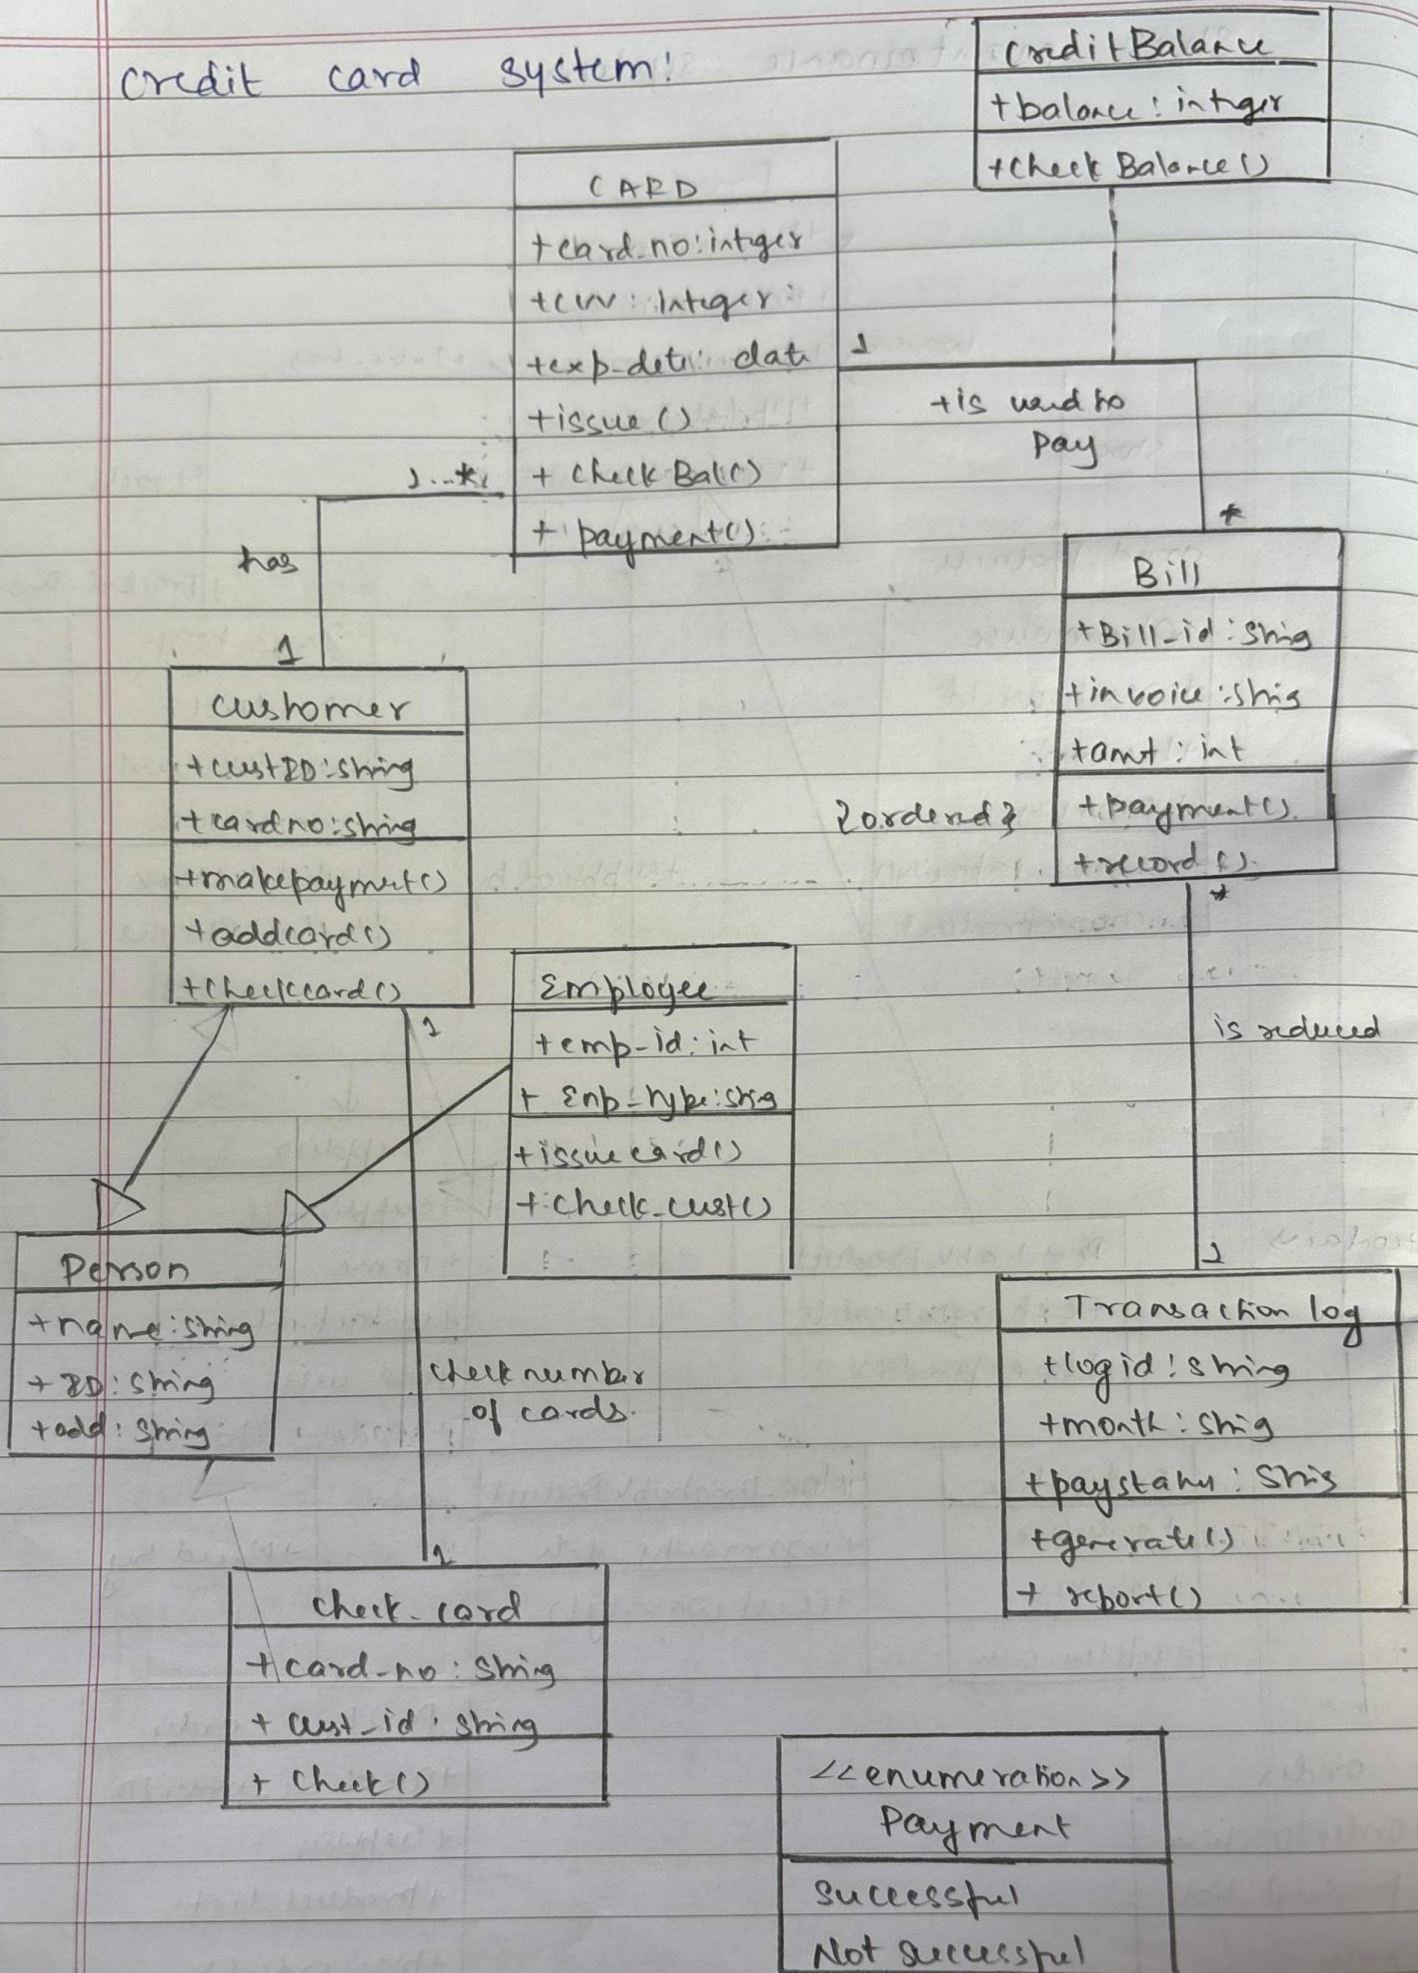 credit card system:
CreditBalance
+balance: integer
+check Balance()
CARD
+card_no:integer
+cvv: Integer:
+exp_dete: date
+issue()
+ check Bal()
+ payment()
1
+is used to
pay
*
1...*
has
1
Bill
+Bill_id: String
+invoice: String
+amt: int
+payment()
+record()
{ordered}
*
is reduced
1
customer
+custID:string
+cardno:string
+makepayment()
+addcard()
+checkcard()
1
Employee
+emp-id: int
+ Emp-type:string
+issuecard()
+check_cust()
Person
+name:string
+ID: String
+add: String
check number
of cards.
1
Transaction log
+logid: string
+month: String
+paystatus: String
+generate()
+ report()
check_card
+card-no: String
+ cust_id: string
+ check()
<<enumeration>>
Payment
Successful
Not successful